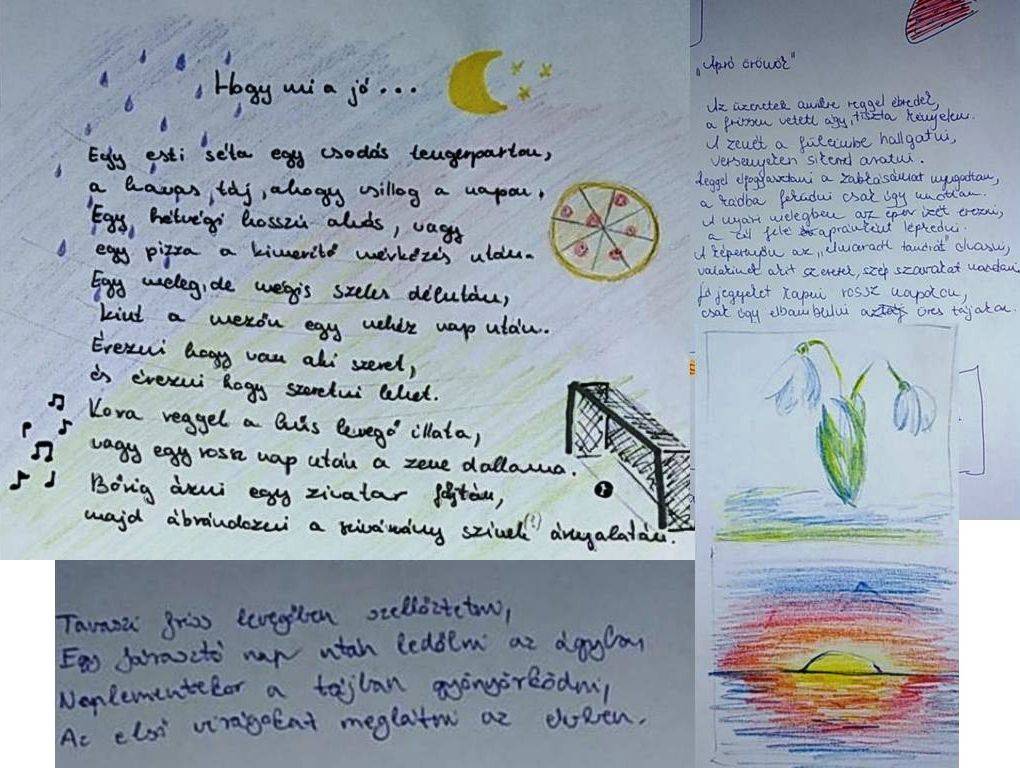 Hogy mi a jó...
Egy esti séta egy csodás tengerparton,
a havas táj, ahogy csillog a napon.
Egy hétvégi hosszú alvás, vagy
egy pizza a kimerítő mérkőzés után.
Egy meleg, de mégis szeles délután,
kint a mezőn egy nehéz nap után.
Érezni hogy van aki szeret,
és érezni hogy szeretni lehet.
Kora reggel a hűs levegő illata,
vagy egy rossz nap után a zene dallama.
Bőrig ázni egy zivatar folytán,
majd ábrándozni a szivárvány színek (!) árnyalatán.
"Apró örömök"
Az üzenetek amikre reggel ébredek,
a frissen vetett ágy, tiszta kényelem.
A zenét a fülembe hallgatni,
versenyeken sikert aratni.
Reggel elfogyasztani a zabkásámat nyugodtan,
a kádba feküdni csak úgy unottan.
A nyári melegben az eper ízét érezni,
a cél felé apránként lépkedni.
A képernyőn az "elmaradt tanórát" olvasni,
valakinek akit szeretek, szép szavakat mondani
Jó jegyeket kapni rossz napokon,
csak úgy elbambulni az üres tájakon.
Tavaszi friss levegőben szellőztetni,
Egy fárasztó nap után ledőlni az ágyban
Naplementekor a tájban gyönyörködni,
Az első virágokat meglátni az évben.